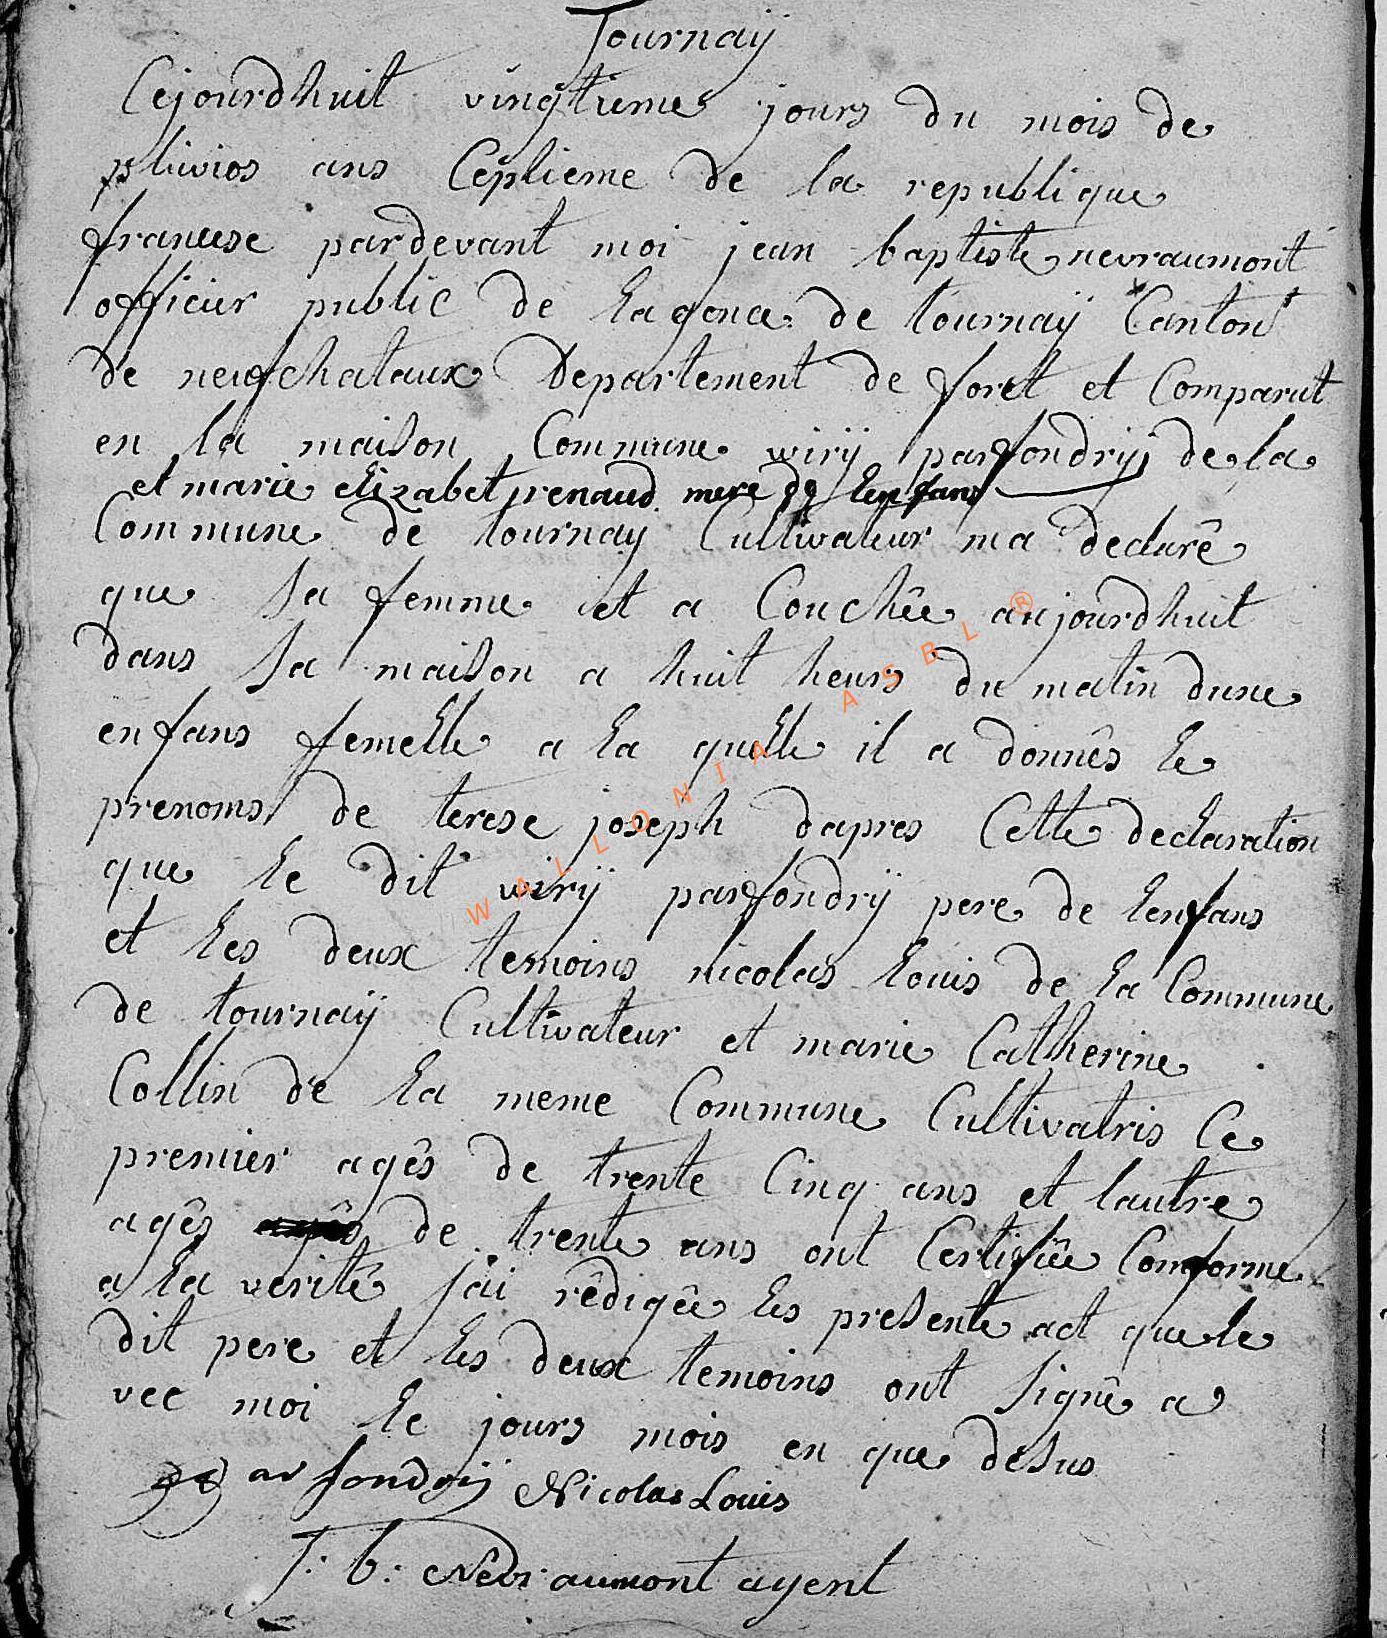 Tournaÿ
Cejourdhuit vingtieme jours du mois de
pluvios ans Ceptieme de la republique
francese pardevant moi jean baptiste nevraumont
officier public de lagence de tournaÿ Canton
de neufchataux Departement de foret et Comparut
en la maison Commune wirÿ parfondrÿ de la
et marie elizabet renaud mere de lenfans
Commune de tournay Cultivateur ma declarê
que sa femme et a Couchêe aujourdhuit
dans sa maison a huit heurs du matin dune
enfans femelle a la quelle il a donnês le
prenoms de terese joseph dapres Cette declaration
que le dit wirÿ parfondrÿ pere de lenfans
et les deux temoins nicolas louis de la Commune
de tournaÿ Cultivateur et marie Catherine
Collin de la meme Commune Cultivatris Ce
premier agês de trente Cinq ans et lautre
agês de trente ans ont Certifiêe Comforme
a la verité jai rêdigêe les presente act que le
dit pere et les deux temoins ont signê a
vec moi le jours mois en que desus
arfondrÿ Nicolas Louis
J: b: Nevraumont agent
WALLONIA ASBL ®